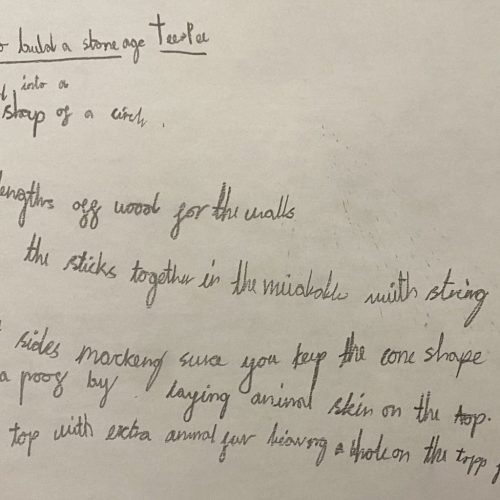 o build a stone age Tee-Pee
into a
shap of a circl.
lengths off wood for the walls
the sticks together in the with string
sides markeng sure you keep the cone shape
a poof by laying animal skin on the top.
top with extra animal fur leaving a hole on the topp